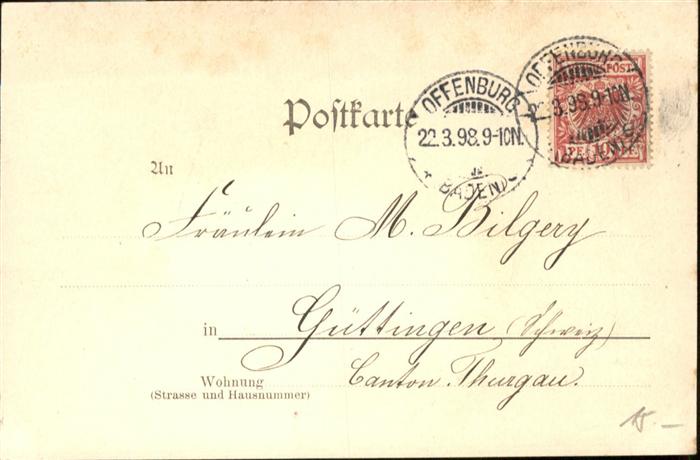 OFFENBURG
22.3.98.9-10N.
(BADEN)
OFFENBURG
.3.98.9-10N.
(BADEN)
POST
10
Postkarte
An
Fräulein M. Bilgery
in Güttingen (Schweiz)
Wohnung Canton Thurgau.
(Strasse und Hausnummer)
15.–